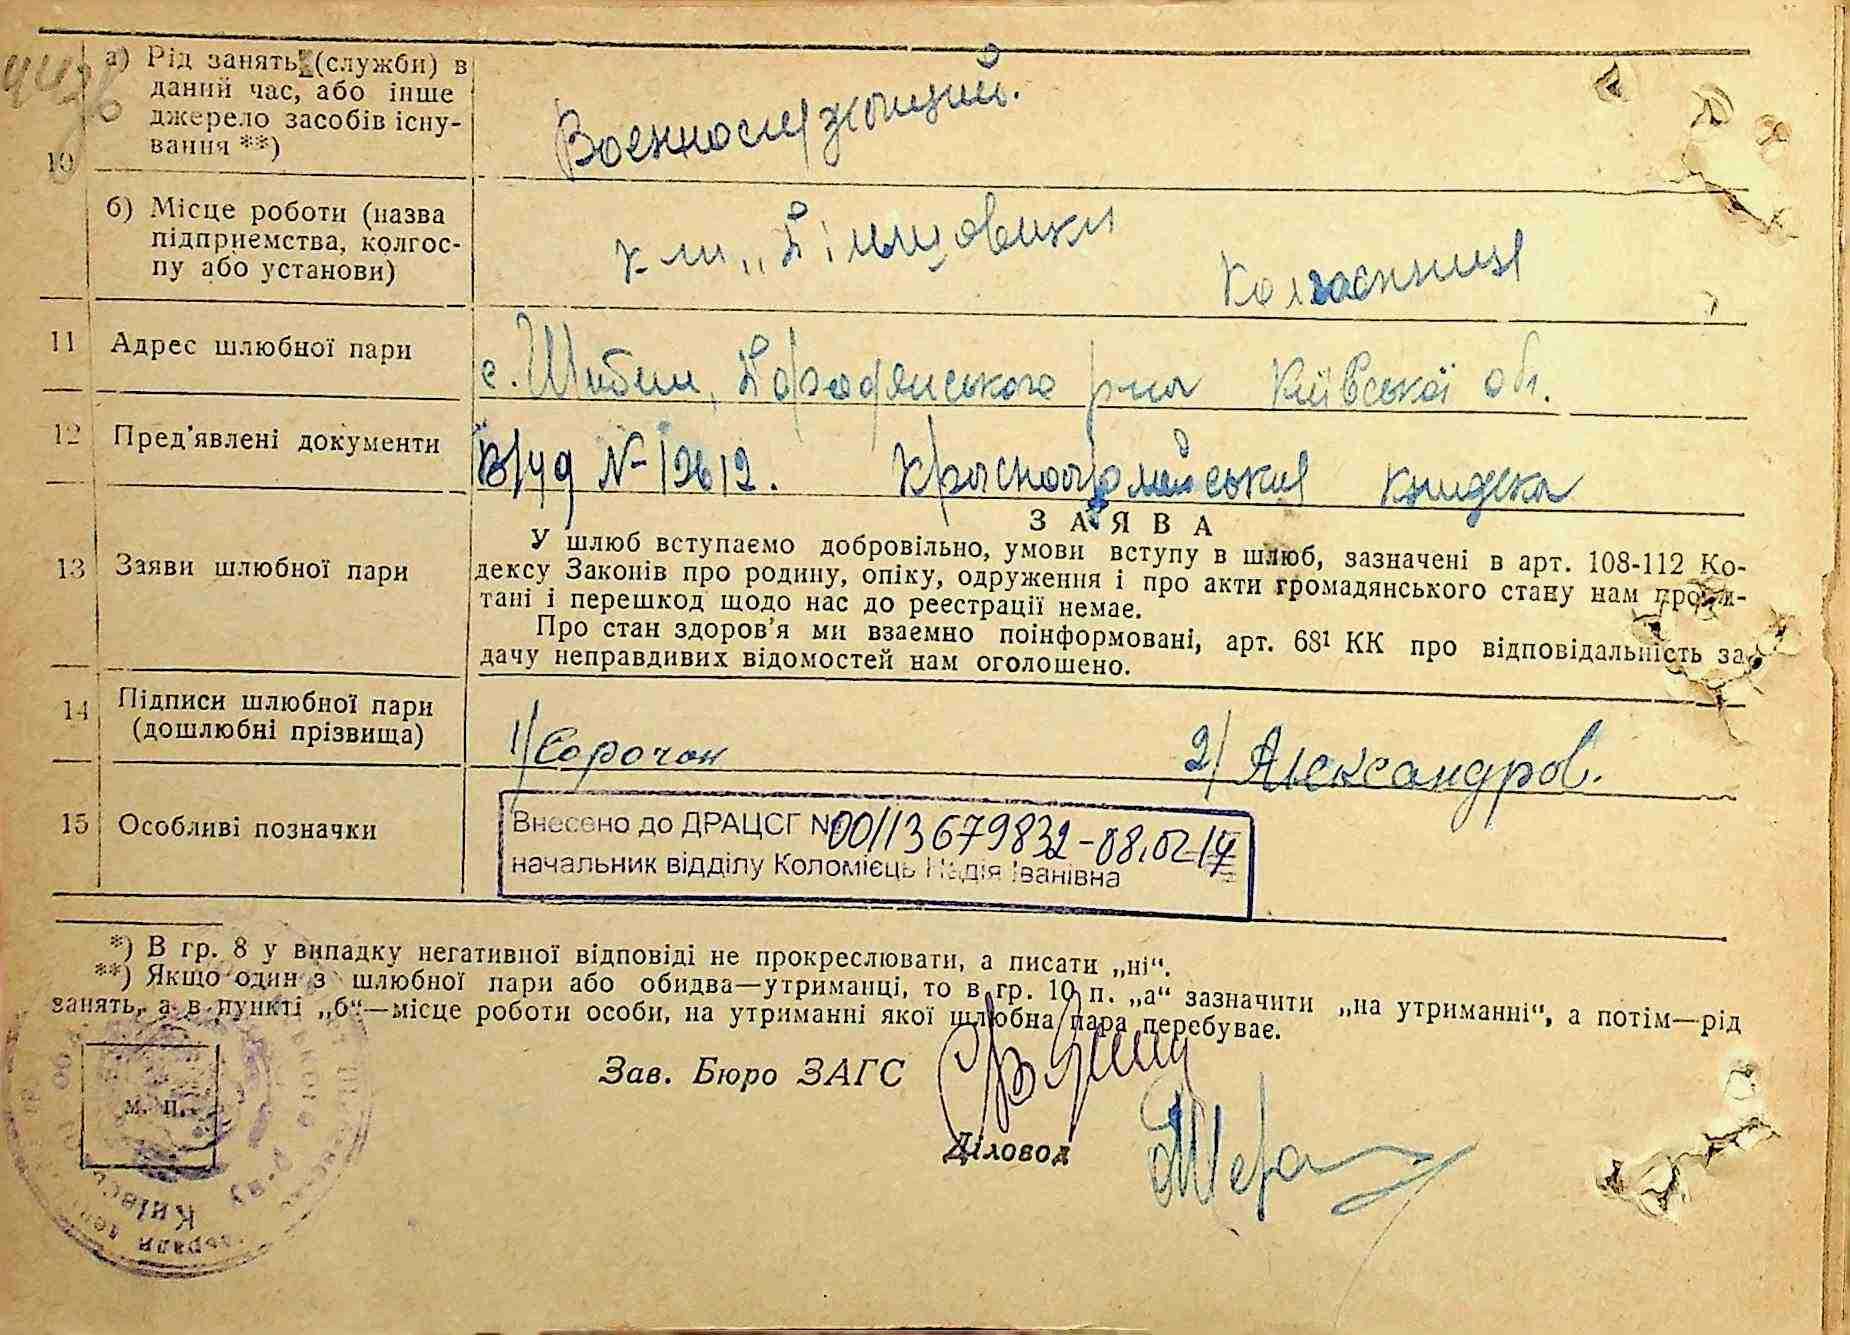 а) Рід занять (служби) в
даний час, або інше
джерело засобів існу-
вання **)
Военнослужащий.
10
б) Місце роботи (назва
підприємства, колгос-
пу або установи)
к-ли „Більшовик"
Колгоспниця
11 Адрес шлюбної пари
с. Шибене, Бородянського р-на Київської обл.
12 Пред'явлені документи
В/уд № 12612. Красноармейська книжка
ЗАЯВА
13 Заяви шлюбної пари
У шлюб вступаємо добровільно, умови вступу в шлюб, зазначені в арт. 108-112 Ко-
дексу Законів про родину, опіку, одруження і про акти громадянського стану нам прочи-
тані і перешкод щодо нас до реєстрації немає.
Про стан здоров'я ми взаємно поінформовані, арт. 68¹ КК про відповідальність за
дачу неправдивих відомостей нам оголошено.
14 Підписи шлюбної пари
(дошлюбні прізвища)
1/ Сорочан 2/ Александров.
15 Особливі позначки
Внесено до ДРАЦСГ № 00113679832-08.02.14
начальник відділу Коломієць Надія Іванівна
*) В гр. 8 у випадку негативної відповіді не прокреслювати, а писати „ні".
**) Якщо один з шлюбної пари або обидва—утриманці, то в гр. 10 п. „а" зазначити „на утриманні", а потім—рід
занять, а в пункті „б"—місце роботи особи, на утриманні якої шлюбна пара перебуває.
Зав. Бюро ЗАГС
м. п.
Діловод